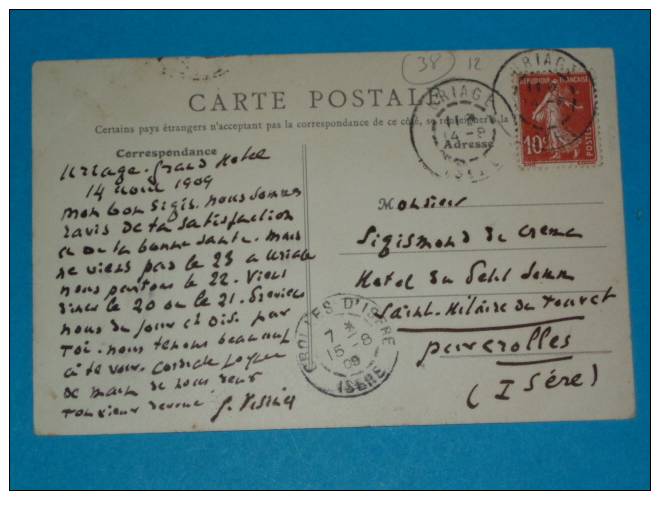 38 12
CARTE POSTALE
Certains pays étrangers n'acceptant pas la correspondance de ce côté, se renseigner à la
Correspondance
Adresse
Uriage. Grand Hotel
14 aout 1909
mon bon Sigis. nous sommes
ravis de ta satisfaction
et de ta bonne santé. mais
ne viens pas le 23 a Uriage
nous partons le 22. Viens
diner le 20 ou le 21. Previens
nous du jour et par
toi. nous tenons beaucoup
à te voir. Cordiale poignee
de main de nous deux
ton vieux
URIAGE
14-8
ISÈRE
URIAGE
RÉPUBLIQUE FRANÇAISE
10c
POSTES
Monsieur
Sigismond de
Hotel du Petit
Saint-Hilaire du Touvet
par Crolles
(Isère)
CROLLES D'ISÈRE
7 * 15-8 09
ISÈRE